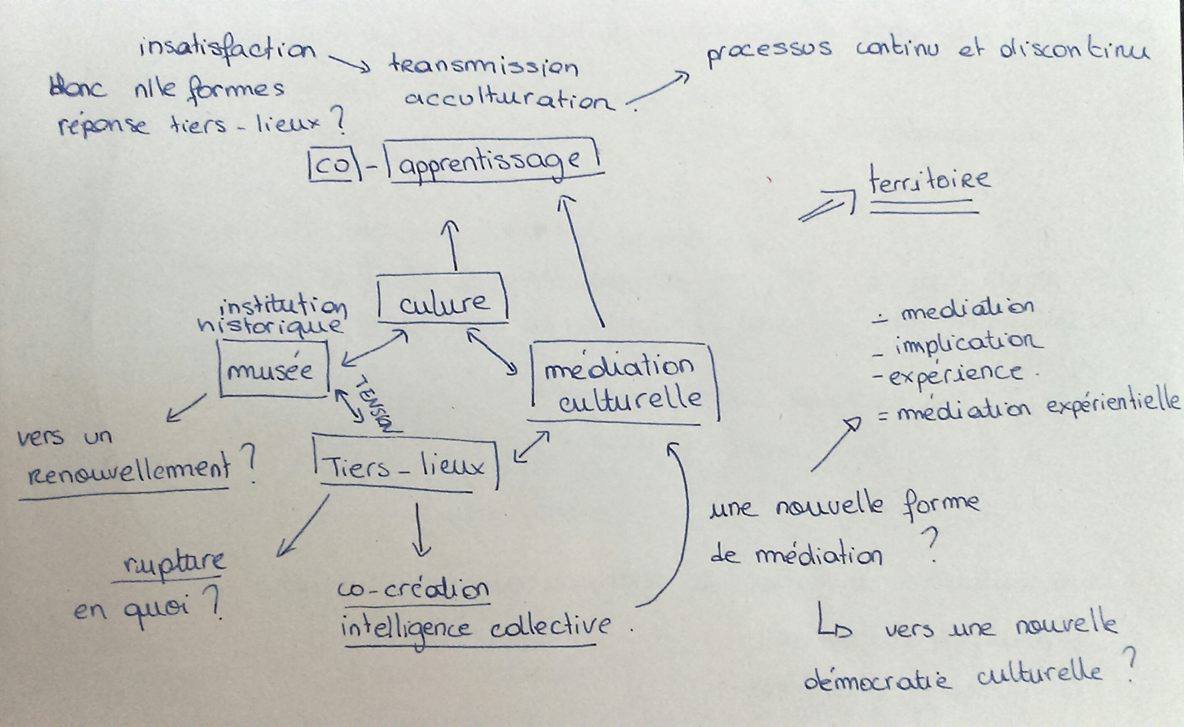 insatisfaction
donc nlle formes
réponse tiers-lieux ?
transmission
acculturation
processus continu et discontinu
co - apprentissage
territoire
culure
institution
historique
musée
TENSION
médiation
culturelle
- mediation
- implication
- expérience.
= médiation expérientielle
vers un
renouvellement ?
Tiers-lieux
une nouvelle forme
de médiation ?
rupture
en quoi ?
co-création
intelligence collective.
vers une nouvelle
démocratie culturelle ?